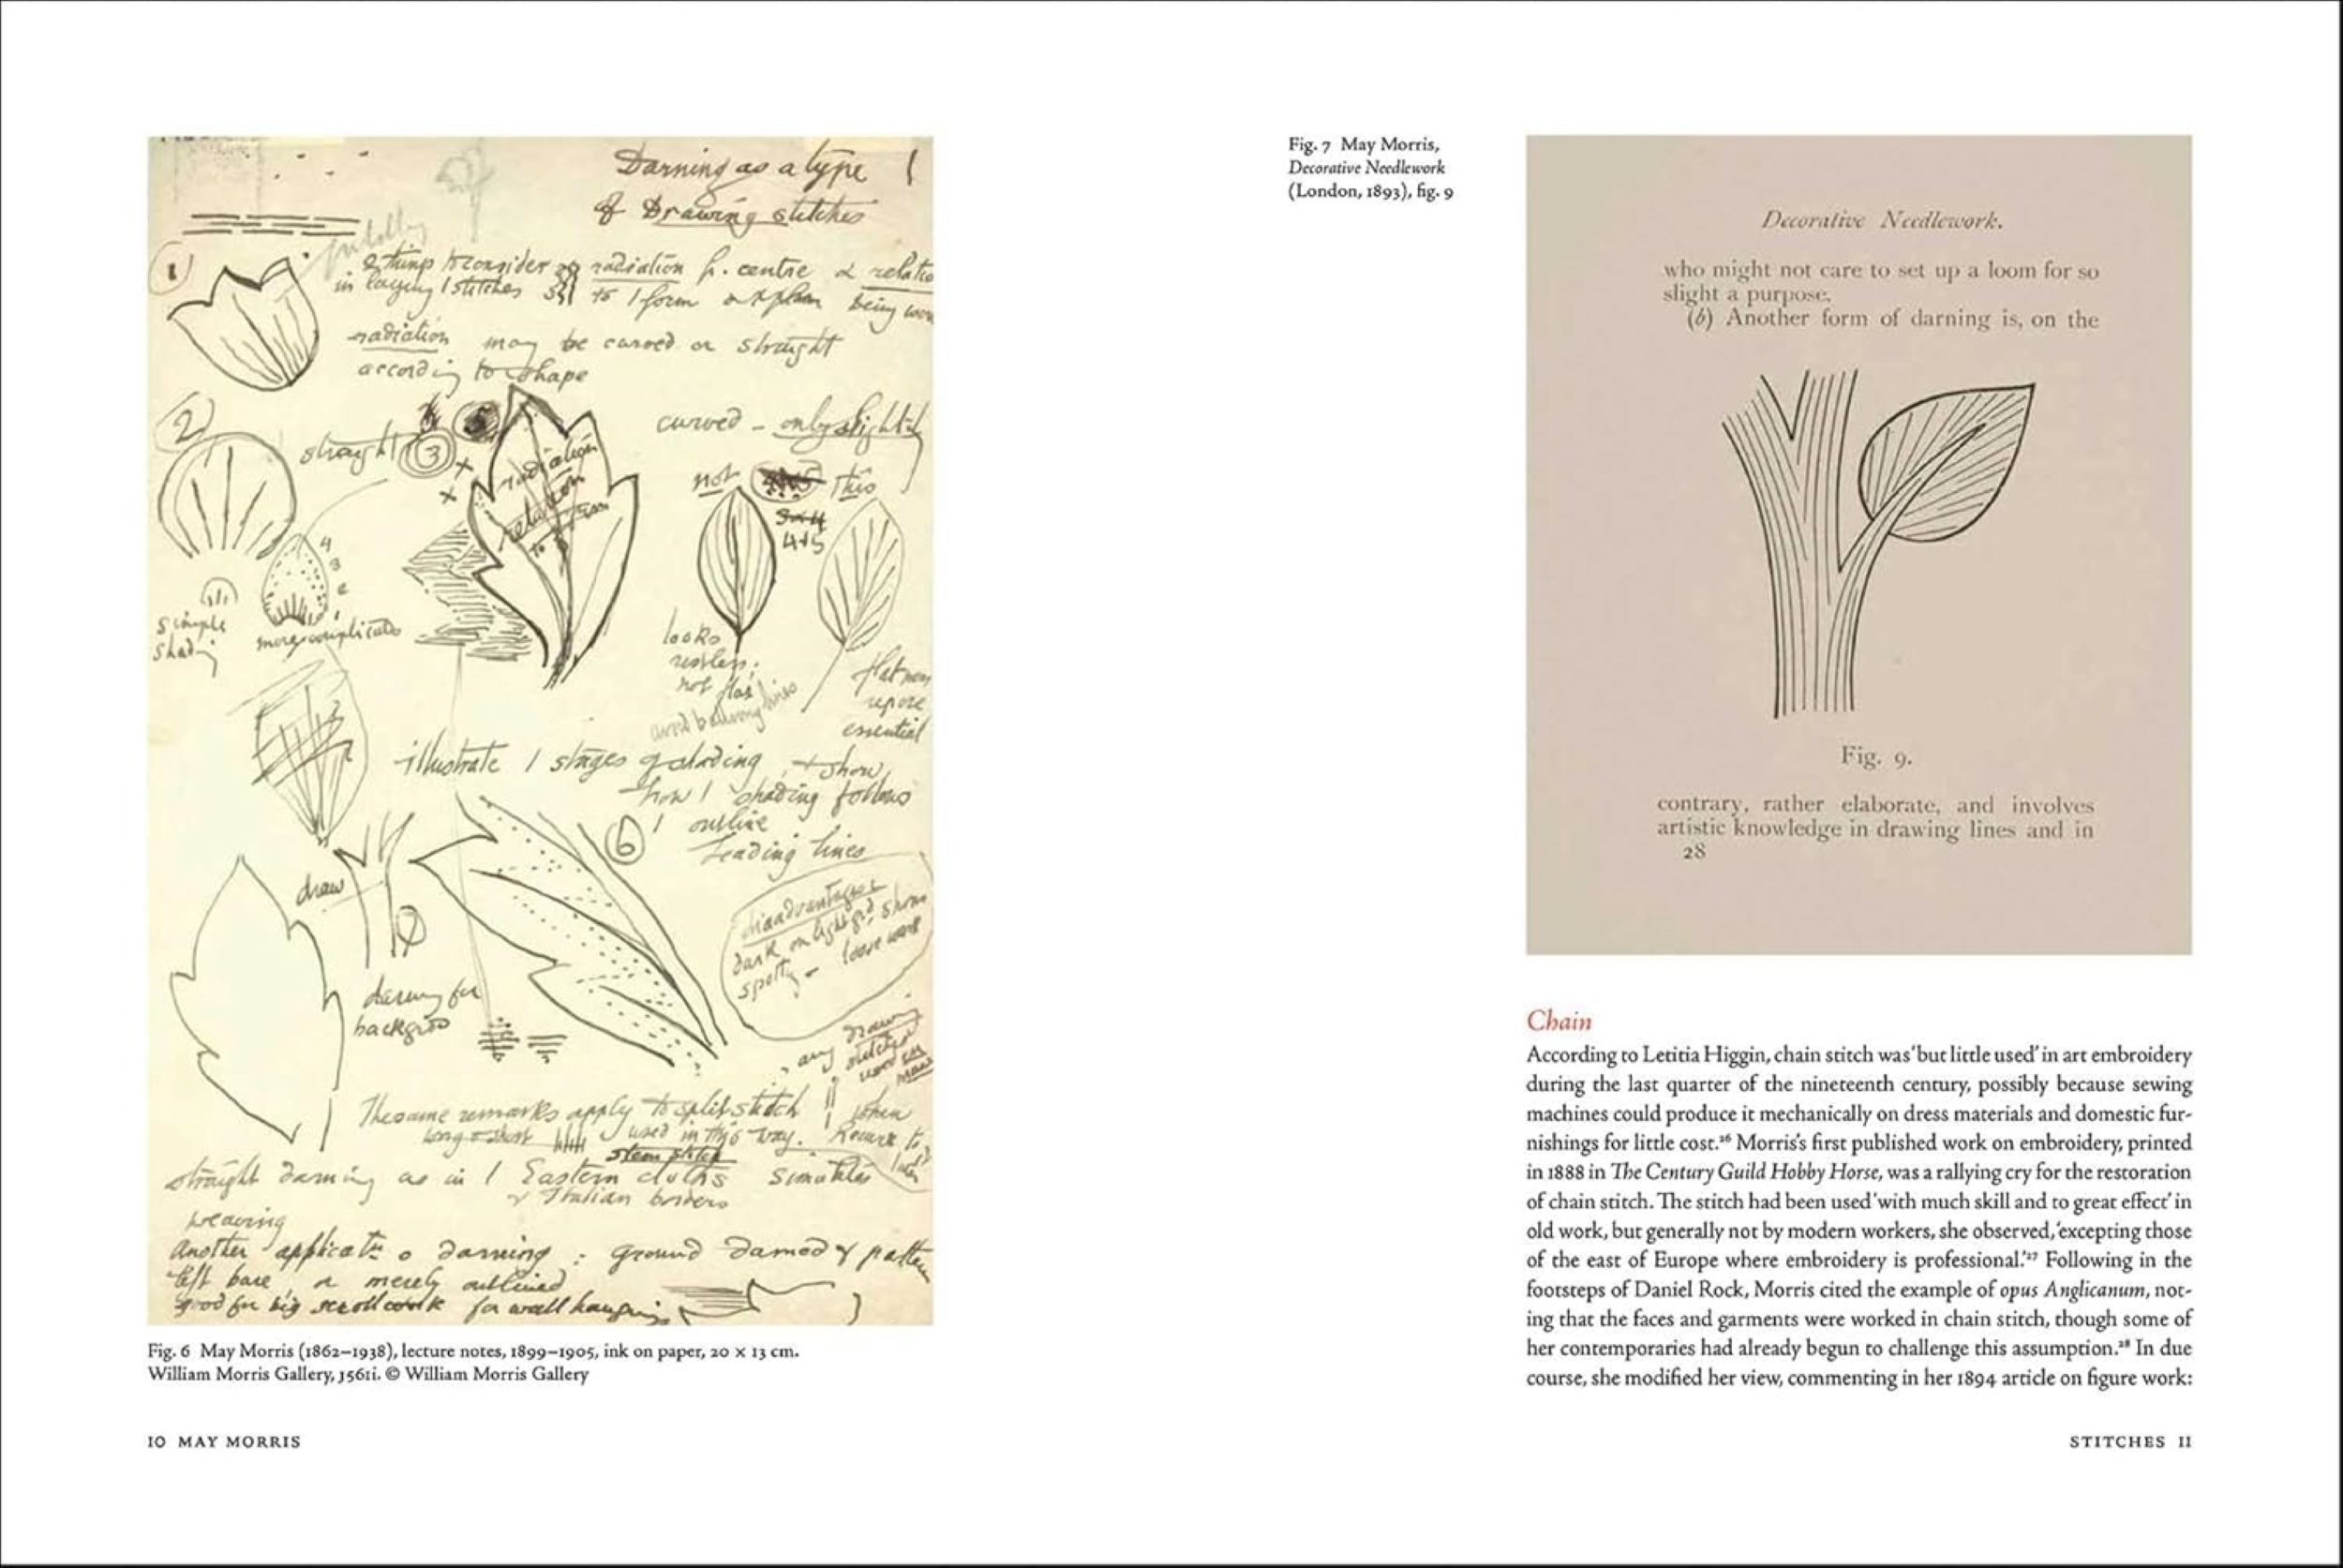 Darning as a type
of Drawing stitches
1
2 things to consider radiation fr. centre & relatio
in laying / stitches to / form being wor
radiation may be curved or straight
according to shape
2
straight
3
5
curved - only slightly
not
this
4+5
radiation
relation
to form
4
3
2
1
simple
shading
more complicated
looks
restless.
not flat
avoid
lines
flatness
repose
essential
illustrate / stages shading, + show
how / shading follows
/ outline
6
leading lines
draw
disadvantages
dark on light grd, shows
spotty - loose work
darning for
backgrod
any drawing
stitches
used in
The same remarks apply to split stitch
long & short used in this way.
stem stitch
when
Recur to
straight darning as in / Eastern cloths simulates
& Italian borders
weaving
another applicatn o darning : ground darned & pattern
left bare, or merely outlined
good for big scroll work for wall hangings
Fig. 6 May Morris (1862–1938), lecture notes, 1899–1905, ink on paper, 20 × 13 cm.
William Morris Gallery, J561i. © William Morris Gallery
10 MAY MORRIS
Fig. 7 May Morris,
Decorative Needlework
(London, 1893), fig. 9
Decorative Needlework.
who might not care to set up a loom for so
slight a purpose.
(b) Another form of darning is, on the
Fig. 9.
contrary, rather elaborate, and involves
artistic knowledge in drawing lines and in
28
Chain
According to Letitia Higgin, chain stitch was ‘but little used’ in art embroidery
during the last quarter of the nineteenth century, possibly because sewing
machines could produce it mechanically on dress materials and domestic fur-
nishings for little cost.²⁶ Morris’s first published work on embroidery, printed
in 1888 in The Century Guild Hobby Horse, was a rallying cry for the restoration
of chain stitch. The stitch had been used ‘with much skill and to great effect’ in
old work, but generally not by modern workers, she observed, ‘excepting those
of the east of Europe where embroidery is professional.’²⁷ Following in the
footsteps of Daniel Rock, Morris cited the example of opus Anglicanum, not-
ing that the faces and garments were worked in chain stitch, though some of
her contemporaries had already begun to challenge this assumption.²⁸ In due
course, she modified her view, commenting in her 1894 article on figure work:
STITCHES 11